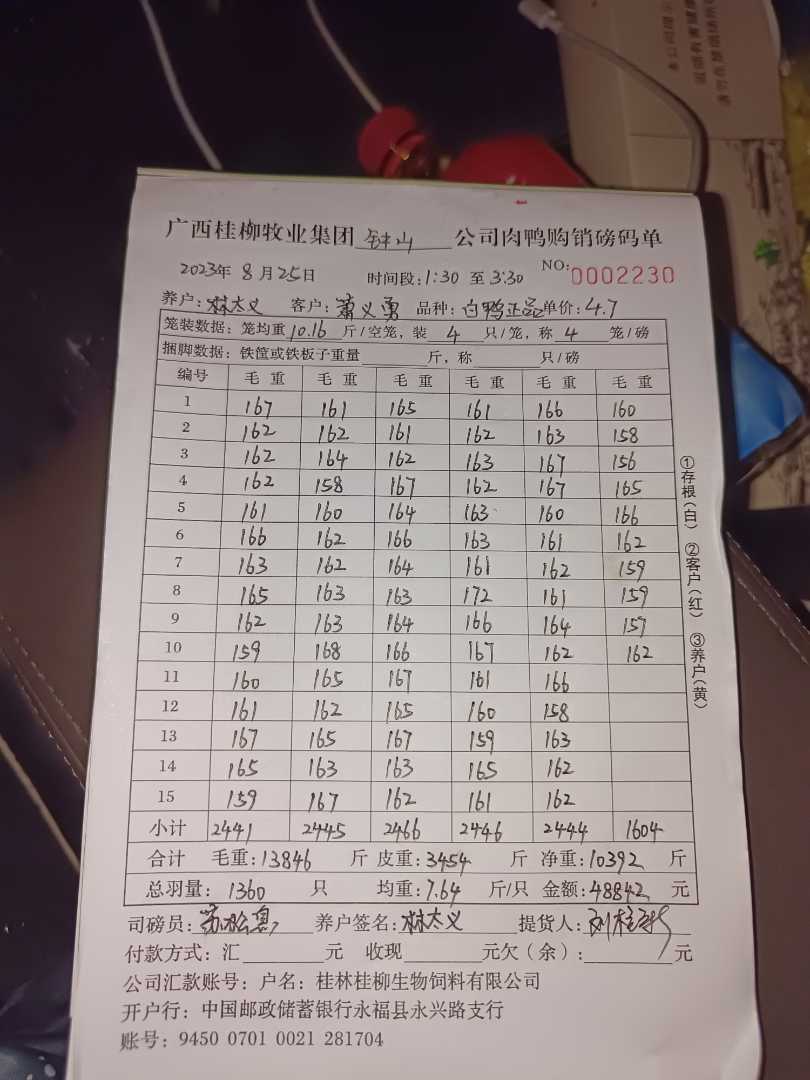 广西桂柳牧业集团 钟山 公司肉鸭购销磅码单
2023年 8月25日 时间段:1:30 至 3:30 NO: 0002230
养户: 林太义 客户: 萧义勇 品种: 白鸭正品 单价: 4.7
笼装数据: 笼均重 10.16 斤/空笼, 装 4 只/笼, 称 4 笼/磅
捆脚数据: 铁筐或铁板子重量 斤, 称 只/磅
编号 毛重 毛重 毛重 毛重 毛重 毛重
1 167 161 165 161 166 160
2 162 162 161 162 163 158
3 162 164 162 163 167 156
4 162 158 167 162 167 165
5 161 160 164 163 160 166
6 166 162 166 163 161 162
7 163 162 164 161 162 159
8 165 163 163 172 161 159
9 162 163 164 166 164 157
10 159 168 166 167 162 162
11 160 165 167 161 166
12 161 162 165 160 158
13 167 165 167 159 163
14 165 163 163 165 162
15 159 167 162 161 162
小计 2441 2445 2466 2446 2444 1604
合计 毛重: 13846 斤 皮重: 3454 斤 净重: 10392 斤
总羽量: 1360 只 均重: 7.64 斤/只 金额: 48842 元
司磅员: 养户签名: 林太义 提货人:
付款方式: 汇 元 收现 元欠(余): 元
公司汇款账号: 户名: 桂林桂柳生物饲料有限公司
开户行: 中国邮政储蓄银行永福县永兴路支行
账号: 9450 0701 0021 281704
①存根(白) ②客户(红) ③养户(黄)